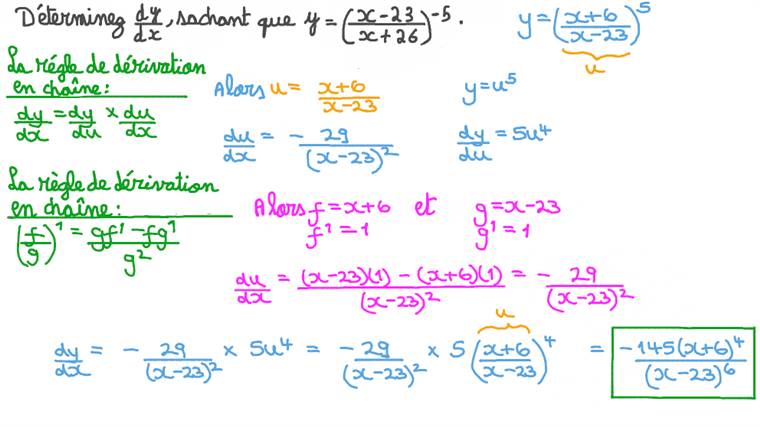 Déterminez dy/dx, sachant que y = ((x-23)/(x+26))^-5. y = ((x+6)/(x-23))^5
u
La régle de dérivation
en chaîne:
dy/dx = dy/du × du/dx
Alors u = (x+6)/(x-23) y = u^5
du/dx = - 29/(x-23)^2 dy/du = 5u^4
La règle de dérivation
en chaîne:
(f/g)' = (gf' - fg')/g^2
Alors f = x+6 et g = x-23
f' = 1 g' = 1
du/dx = ((x-23)(1) - (x+6)(1))/(x-23)^2 = - 29/(x-23)^2
u
dy/dx = - 29/(x-23)^2 × 5u^4 = - 29/(x-23)^2 × 5((x+6)/(x-23))^4 = -145(x+6)^4/(x-23)^6